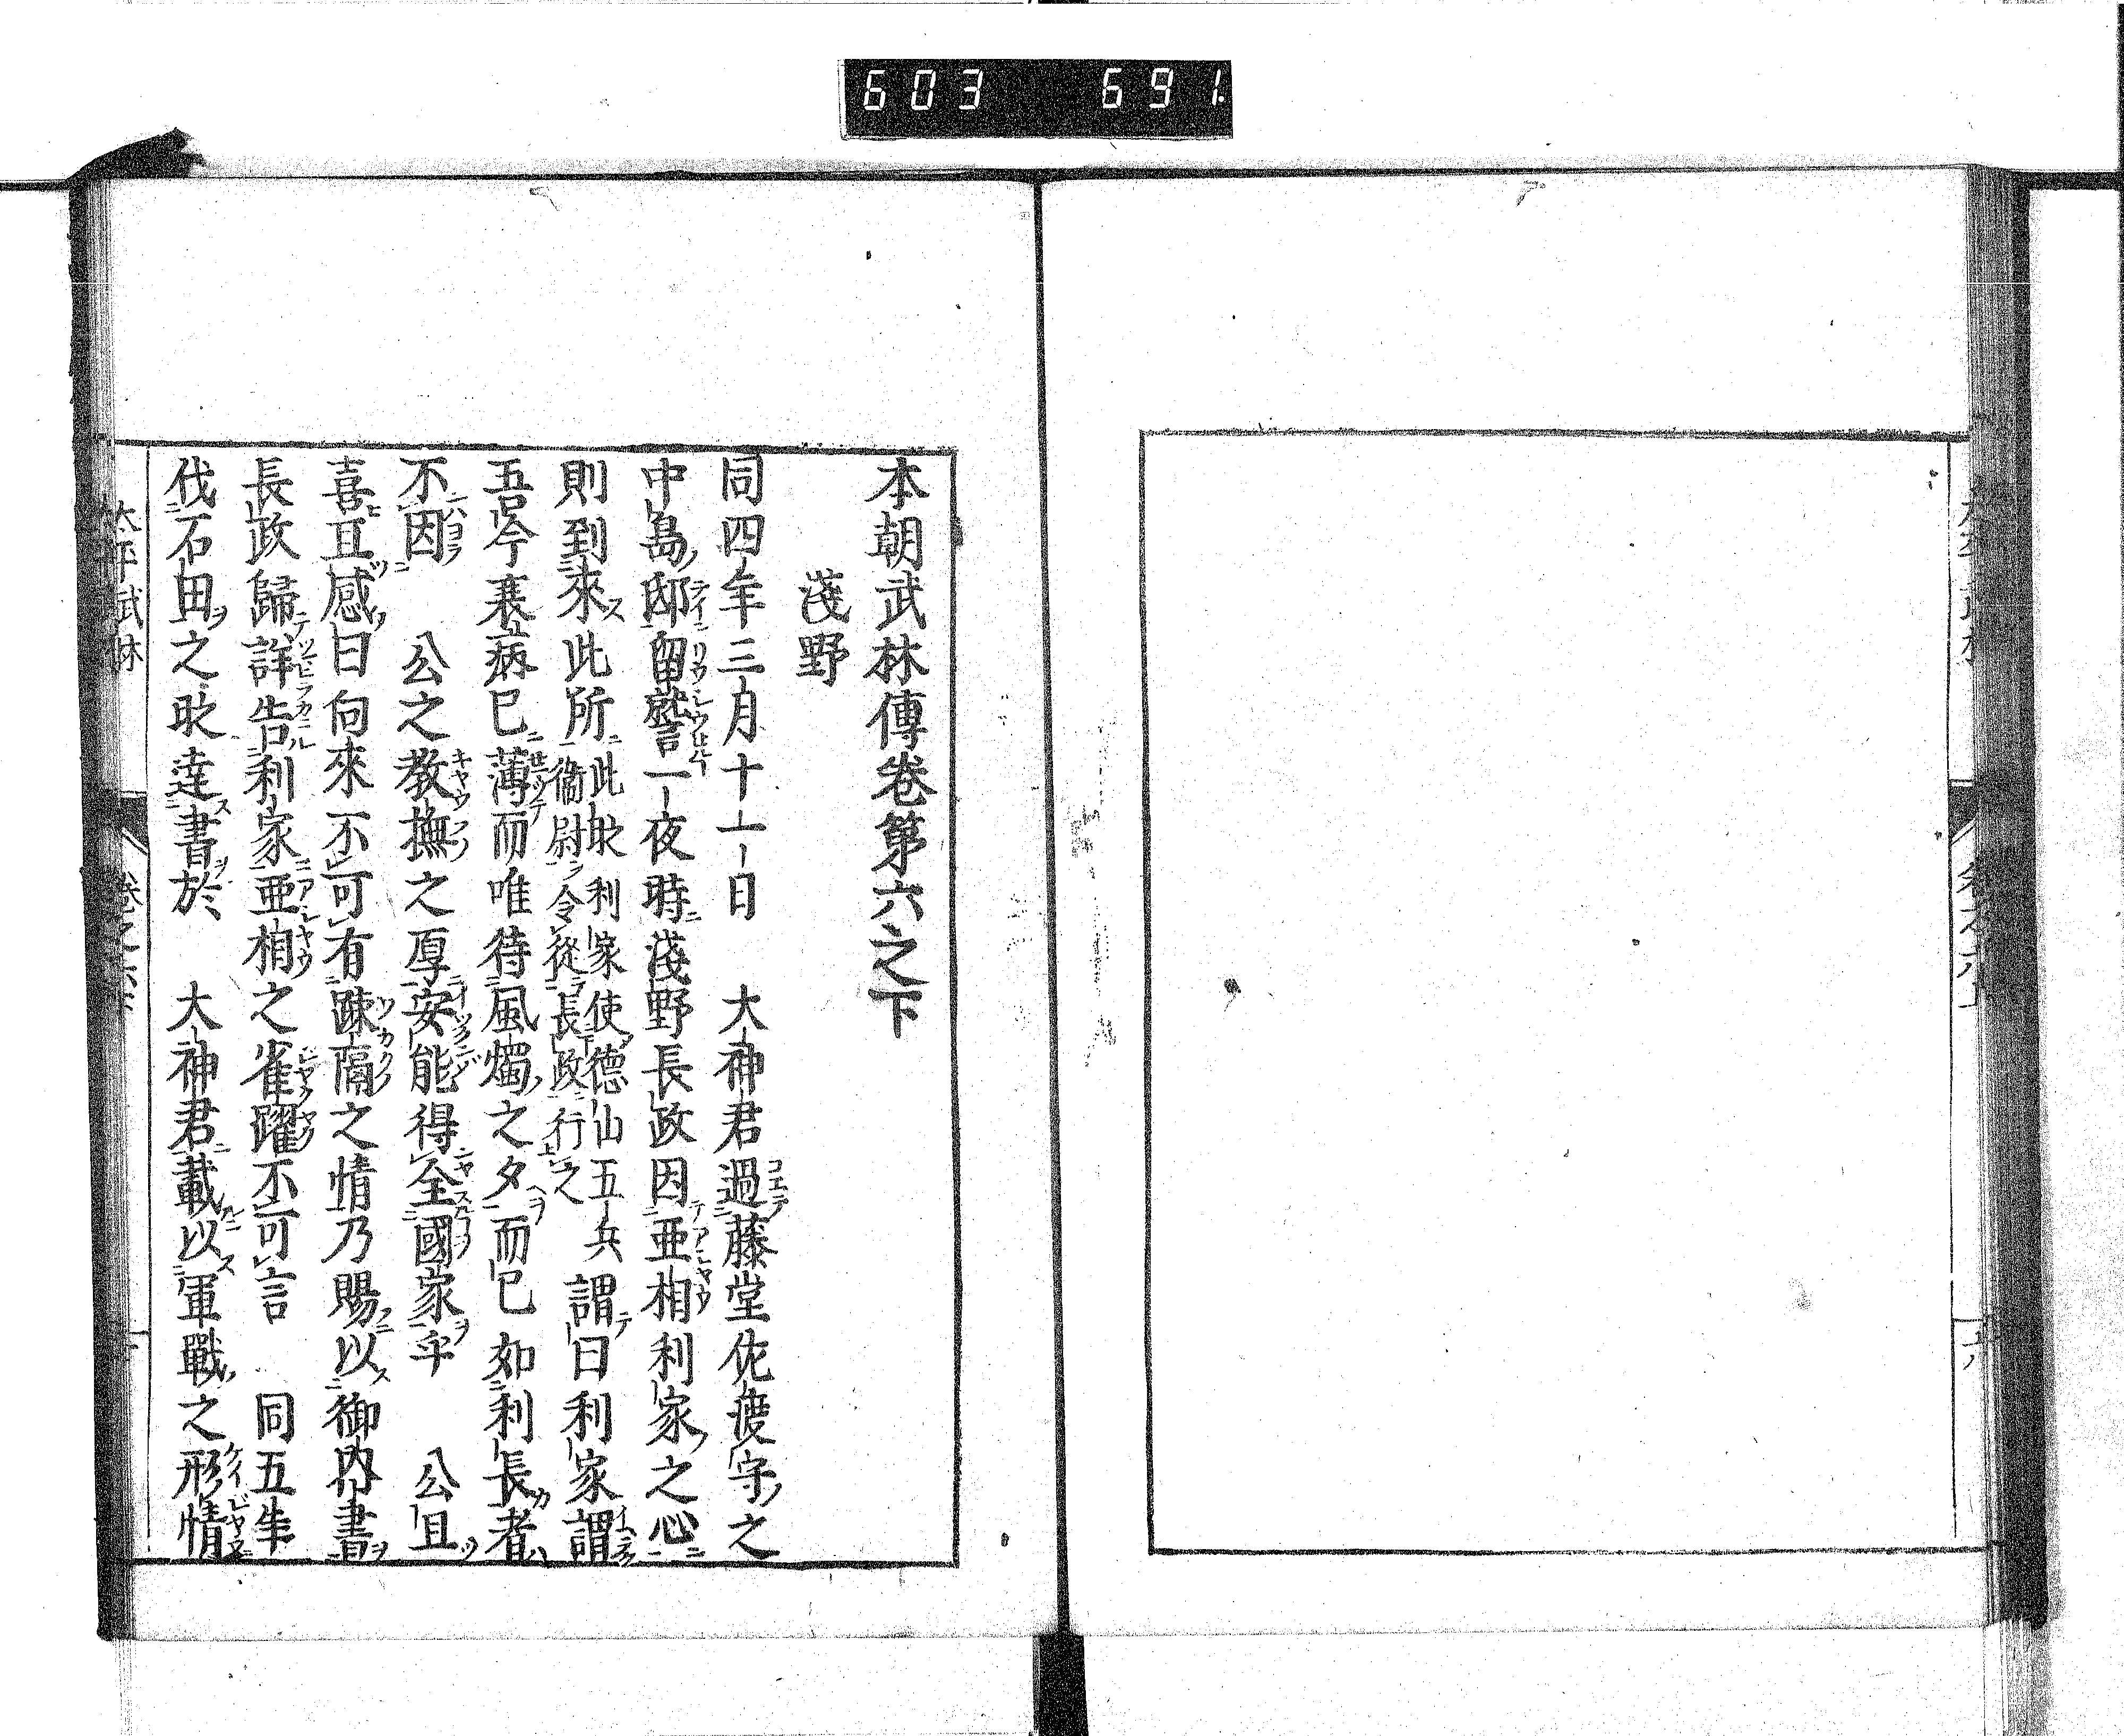 603 691
本朝武林傳卷第六之下
淺野
同四年三月十一日　大神君過藤堂佐渡守之
中島邸留讐一夜時淺野長政因亞相利家之心
則到來此所此時利家使德山五兵衞尉令從長政行之謂曰利家謂
吾今衰病已薄而唯待風燭之夕而已如利長者
不因　公之教撫之厚安能得全國家乎　公且
喜且感曰向來不可有踈隔之情乃賜以御内書
長政歸詳告利家亞相之雀躍不可言　同五年
伐石田之時達書於　大神君載以軍戰之形情
本朝武林　卷之六下